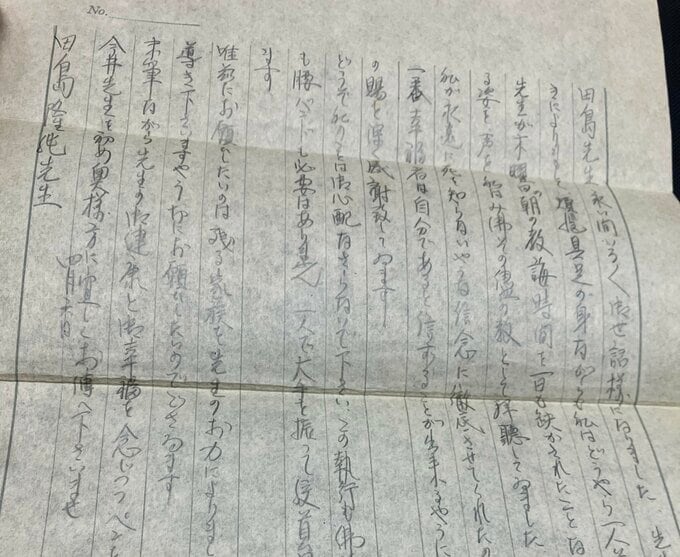 No.
田島先生 永い間いろ〱御世話様になりました 先生
きによりまして 具足の身ながらも私はどうやら一人
先生が木曜朝の教誨時間を一日も欠かされたことな
る姿を声を 佛その儘の教として拝聴してゐました
私が永遠に死を知らないやうな信念に徹底させてくれたの
一番幸福者は自分であると信ずることが出来るやうに
の賜と深く感謝致してゐます
どうぞ私のことは御心配なさらないで下さい この執行も佛
も 必要はありません 一人で大手を振って絞首台
ます
唯玆にお願ひしたいのは残る家族も先生のお力によりまし
導き下さいますやう切にお願ひしたいのでございます
末筆ながら先生の御健康と御幸福を念じつつペンを
今井先生を初め奥様方に宜しくお傳へ下さいませ
四月六日
田島隆純先生